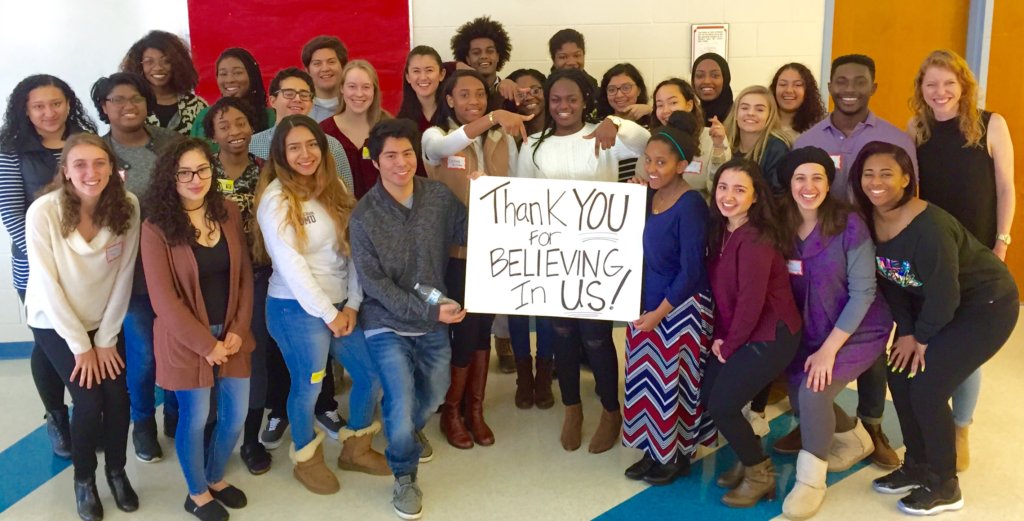 Thank YOU
For
BELIEVING
In US!